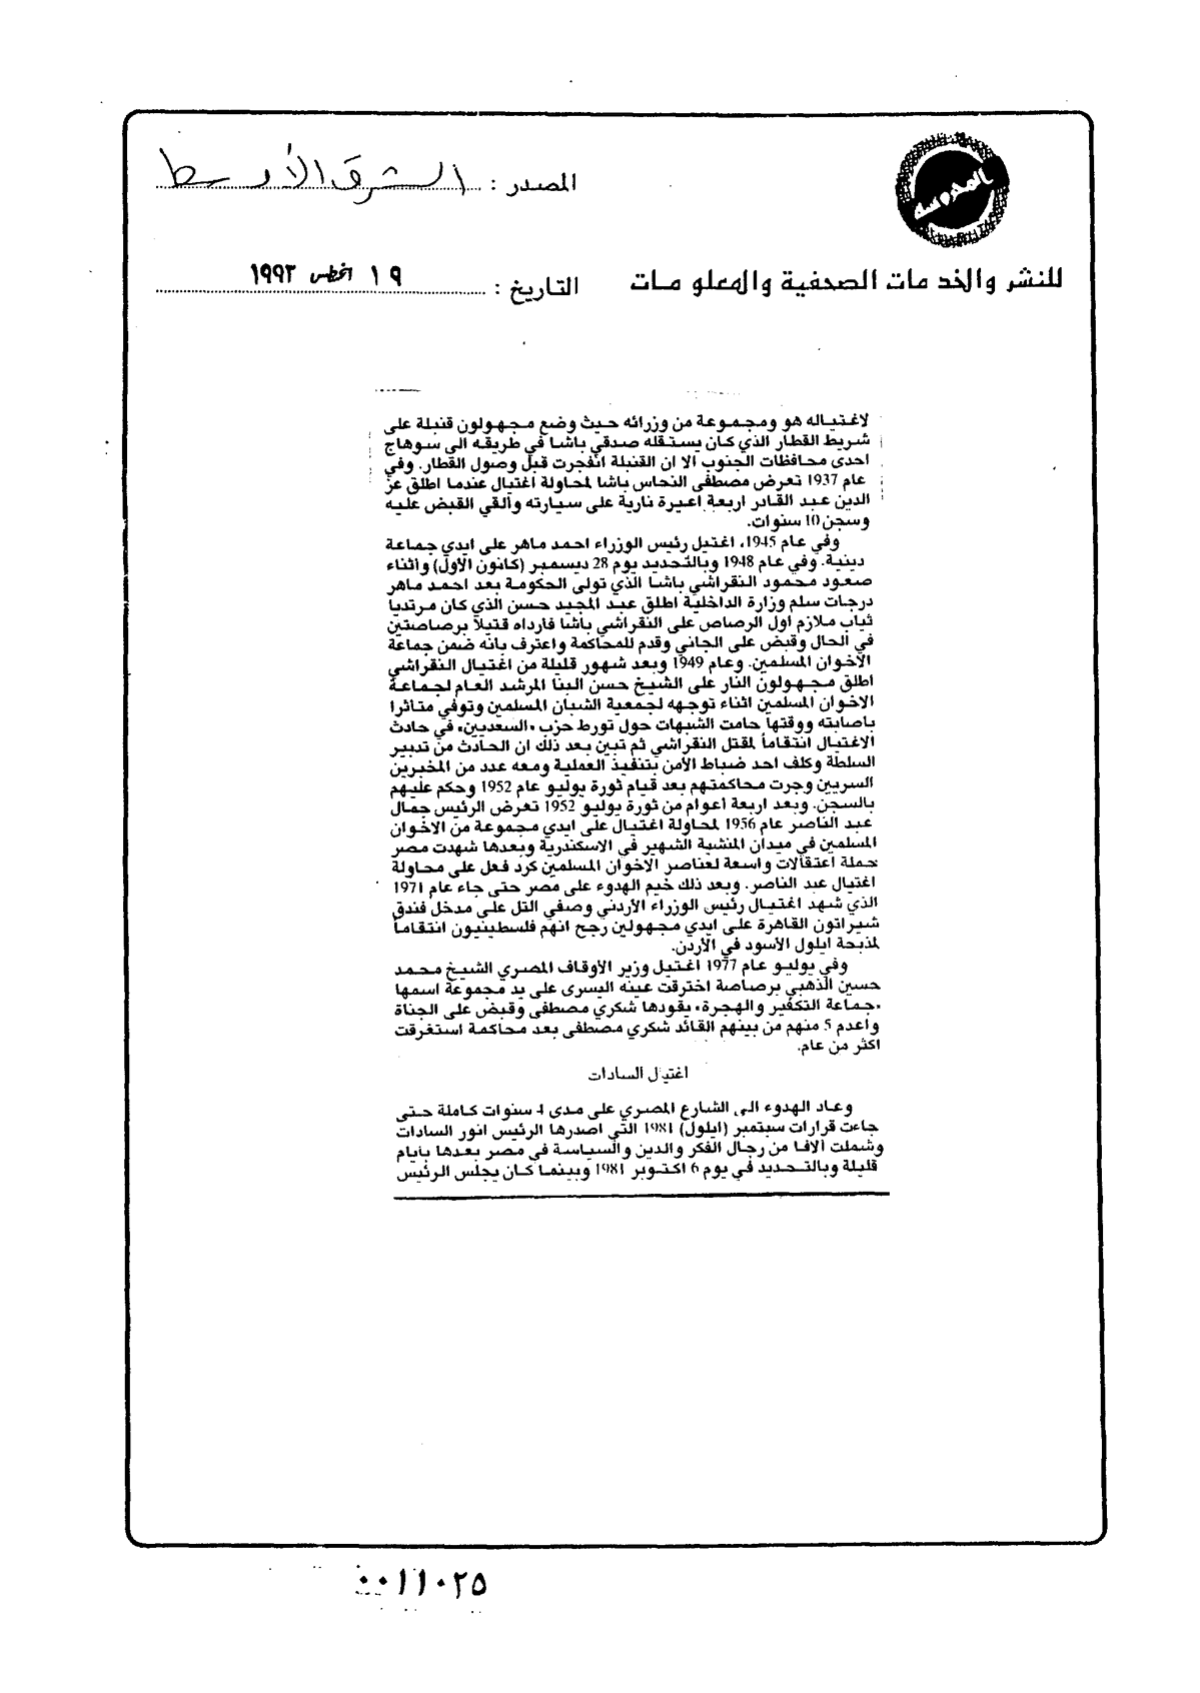 المحروسة
المصدر : الشرق الأوسط
للنشر والخدمات الصحفية والمعلومات
التاريخ : ١٩ اغطس ١٩٩٣
لاغتياله هو ومجموعة من وزرائه حيث وضع مجهولون قنبلة على
شريط القطار الذي كان يستقله صدقي باشا في طريقه الى سوهاج
احدى محافظات الجنوب الا ان القنبلة انفجرت قبل وصول القطار. وفي
عام 1937 تعرض مصطفى النحاس باشا لمحاولة اغتيال عندما اطلق عز
الدين عبد القادر اربعة اعيرة نارية على سيارته وألقي القبض عليه
وسجن 10 سنوات.
وفي عام 1945، اغتيل رئيس الوزراء احمد ماهر على ايدي جماعة
دينية. وفي عام 1948 وبالتحديد يوم 28 ديسمبر (كانون الأول) واثناء
صعود محمود النقراشي باشا الذي تولى الحكومة بعد احمد ماهر
درجات سلم وزارة الداخلية اطلق عبد المجيد حسن الذي كان مرتديا
ثياب ملازم اول الرصاص على النقراشي باشا فارداه قتيلاً برصاصتين
في الحال وقبض على الجاني وقدم للمحاكمة واعترف بانه ضمن جماعة
الاخوان المسلمين. وعام 1949 وبعد شهور قليلة من اغتيال النقراشي
اطلق مجهولون النار على الشيخ حسن البنا المرشد العام لجماعة
الاخوان المسلمين اثناء توجهه لجمعية الشبان المسلمين وتوفي متاثرا
باصابته ووقتها حامت الشبهات حول تورط حزب «السعديين» في حادث
الاغتيال انتقاماً لمقتل النقراشي ثم تبين بعد ذلك ان الحادث من تدبير
السلطة وكلف احد ضباط الأمن بتنفيذ العملية ومعه عدد من المخبرين
السريين وجرت محاكمتهم بعد قيام ثورة يوليو عام 1952 وحكم عليهم
بالسجن. وبعد اربعة أعوام من ثورة يوليو 1952 تعرض الرئيس جمال
عبد الناصر عام 1956 لمحاولة اغتيال على ايدي مجموعة من الاخوان
المسلمين في ميدان المنشية الشهير في الاسكندرية وبعدها شهدت مصر
حملة اعتقالات واسعة لعناصر الاخوان المسلمين كرد فعل على محاولة
اغتيال عبد الناصر. وبعد ذلك خيم الهدوء على مصر حتى جاء عام 1971
الذي شهد اغتيال رئيس الوزراء الأردني وصفي التل على مدخل فندق
شيراتون القاهرة على ايدي مجهولين رجح انهم فلسطينيون انتقاماً
لمذبحة ايلول الأسود في الأردن.
وفي يوليو عام 1977 اغتيل وزير الأوقاف المصري الشيخ محمد
حسين الذهبي برصاصة اخترقت عينه اليسرى على يد مجموعة اسمها
«جماعة التكفير والهجرة» يقودها شكري مصطفى وقبض على الجناة
واعدم 5 منهم من بينهم القائد شكري مصطفى بعد محاكمة استغرقت
اكثر من عام.
اغتيال السادات
وعاد الهدوء الى الشارع المصري على مدى 4 سنوات كاملة حتى
جاءت قرارات سبتمبر (ايلول) 1981 التي اصدرها الرئيس انور السادات
وشملت آلافا من رجال الفكر والدين والسياسة في مصر بعدها بايام
قليلة وبالتحديد في يوم 6 اكتوبر 1981 وبينما كان يجلس الرئيس
٠٠١١٠٢٥